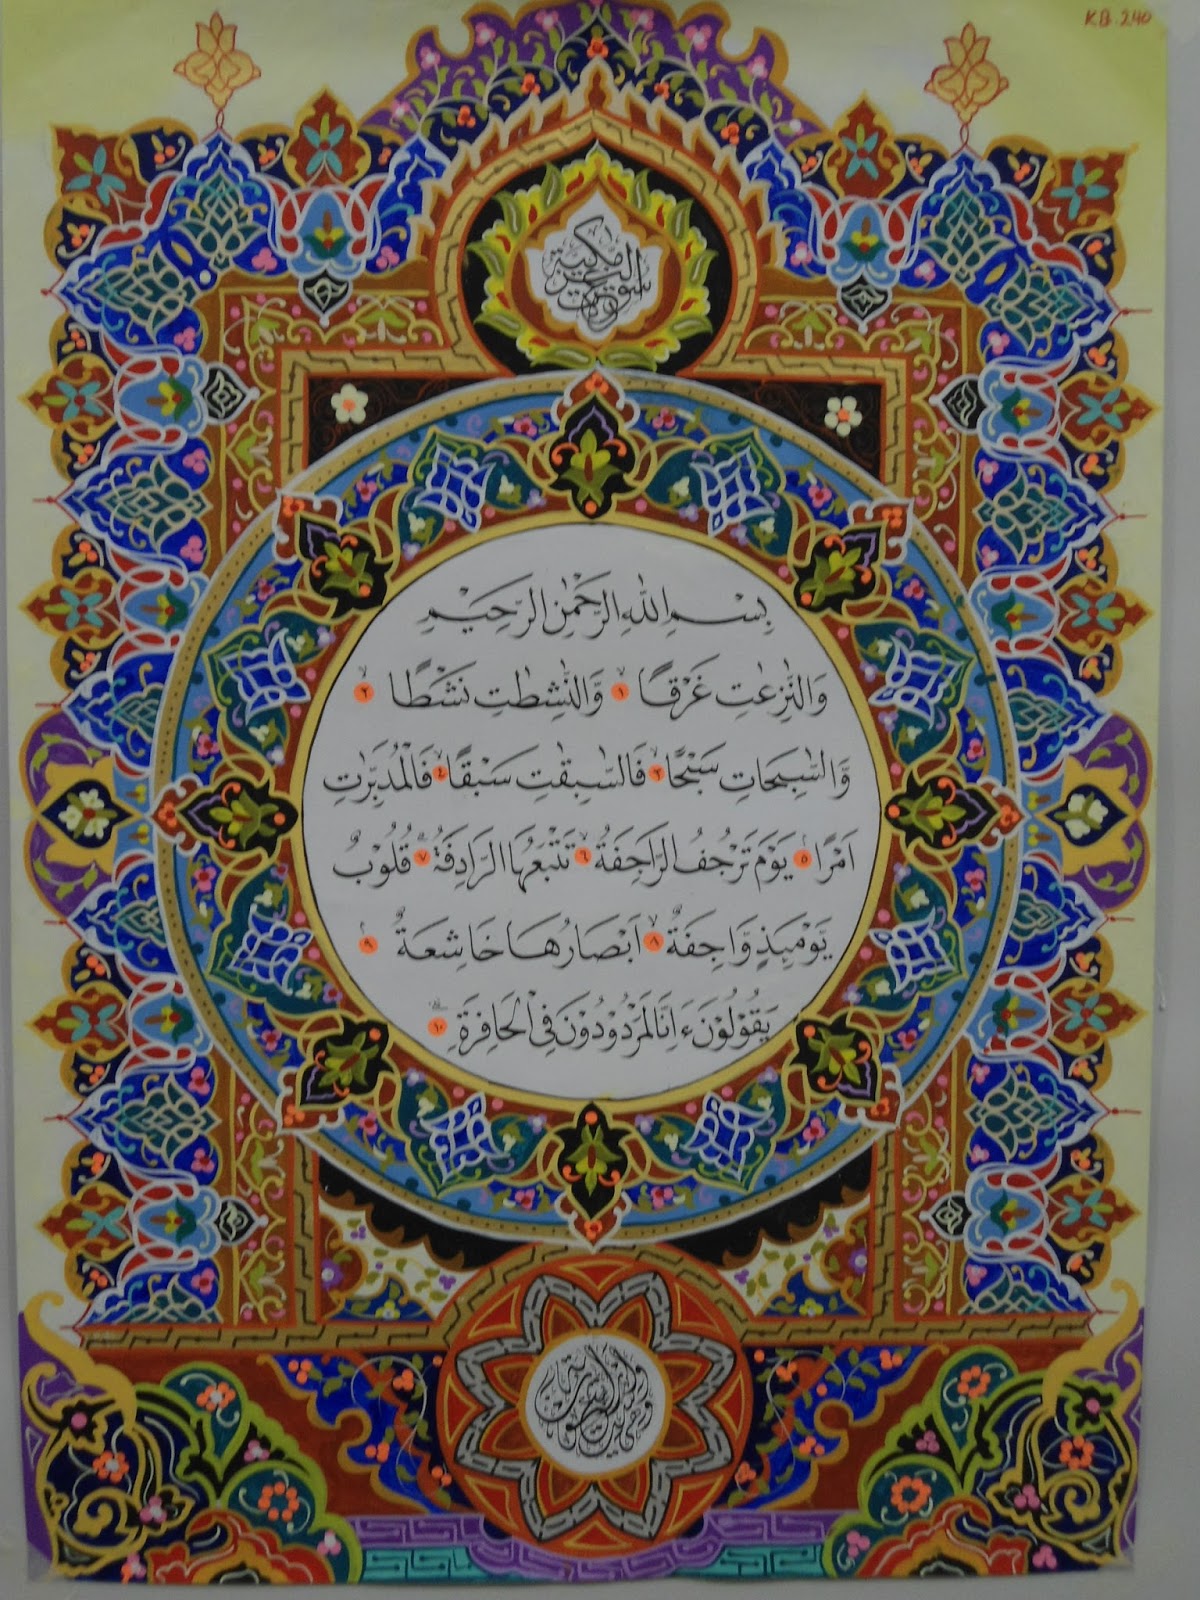 KB. 240
مكية
بِسْمِ اللّٰهِ الرَّحْمٰنِ الرَّحِيْمِ
وَالنّٰزِعٰتِ غَرْقًاۙ ١ وَّالنّٰشِطٰتِ نَشْطًاۙ ٢
وَّالسّٰبِحَاتِ سَبْحًاۙ ٣ فَالسّٰبِقٰتِ سَبْقًاۙ ٤ فَالْمُدَبِّرٰتِ
اَمْرًاۘ ٥ يَوْمَ تَرْجُفُ الرَّاجِفَةُۙ ٦ تَتْبَعُهَا الرَّادِفَةُۗ ٧ قُلُوْبٌ
يَّوْمَىِٕذٍ وَّاجِفَةٌۙ ٨ اَبْصَارُهَا خَاشِعَةٌۘ ٩
يَقُوْلُوْنَ ءَاِنَّا لَمَرْدُوْدُوْنَ فِى الْحَافِرَةِۗ ١٠